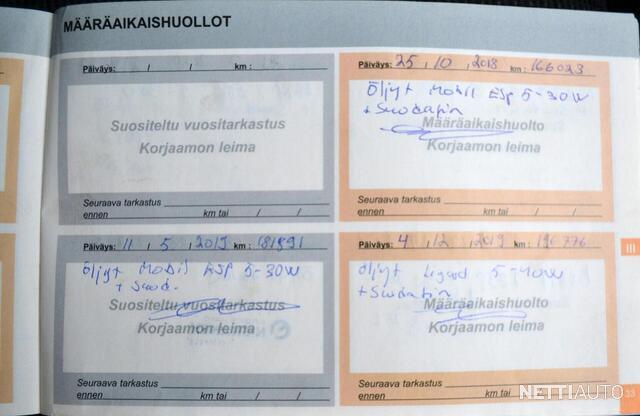 MÄÄRÄAIKAISHUOLLOT
Päiväys: / / km :
Suositeltu vuositarkastus
Korjaamon leima
Seuraava tarkastus
ennen km tai / /
Päiväys: 25 , 10 , 2018 km : 166023
Öljyt Mobil ESP 5-30W
+ Suodatin
Määräaikaishuolto
Korjaamon leima
Seuraava tarkastus
ennen km tai / /
Päiväys: 11 / 5 , 2019 km : 181991
Öljyt Mobil ESP 5-30W
+ Suod.
Suositeltu vuositarkastus
Korjaamon leima
Seuraava tarkastus
ennen km tai / /
Päiväys: 4 , 12 , 2019 km : 196776
Öljyt 5-40W
+ Suodatin
Määräaikaishuolto
Korjaamon leima
Seuraava tarkastus
ennen km tai
III
33
NETTIAUTO